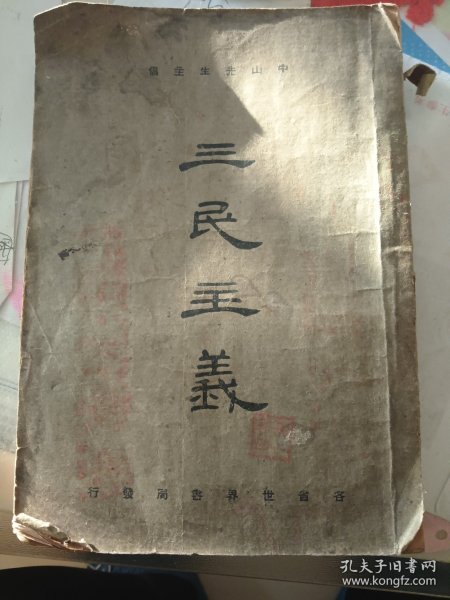 中山先生主倡
三民主義
各省世界書局發行
孔夫子旧书网
www.kongfz.com